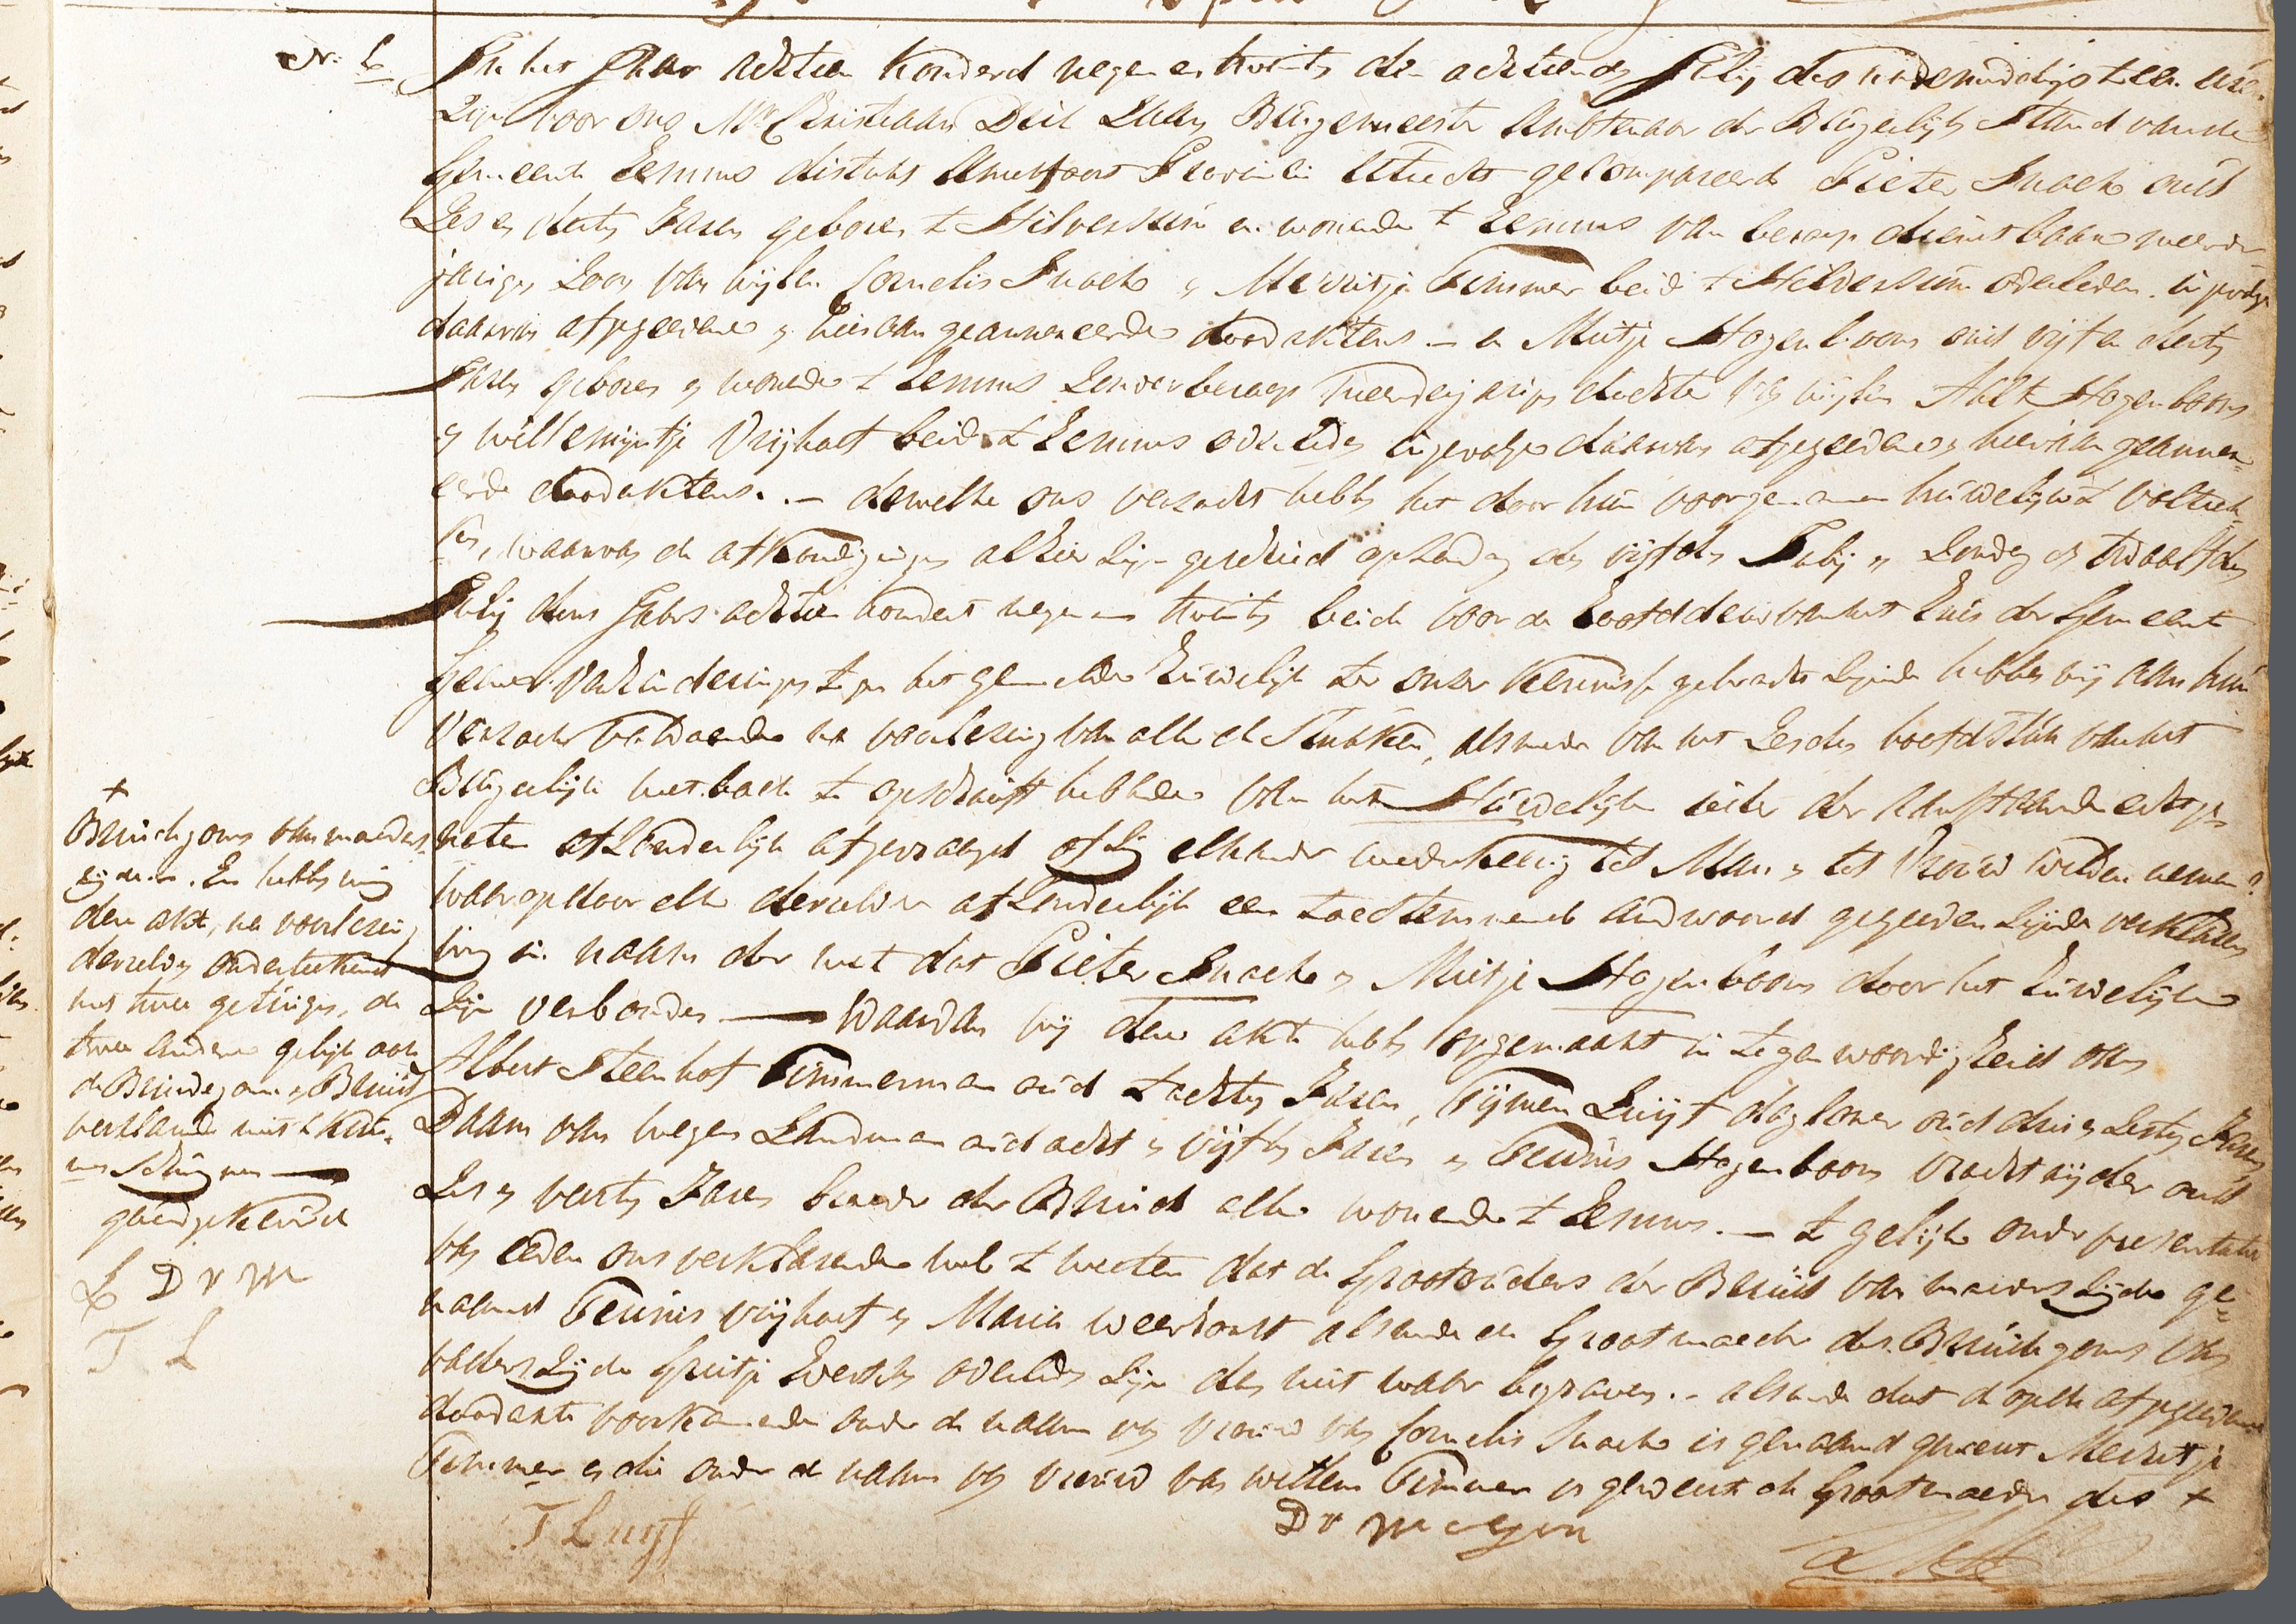 N. 6
In het Jaar achtien honderd negen en twintig den achtienden Julij des namiddags te een ure
Zijn voor ons Mr Christiaan Burgemeester Ambtenaar der Burgerlijke Stand van de
Gemeente Eemnes district Amersfoort Provincie Utrecht gecompareerd Pieter Snoek oud
Zes en dertig Jaren geboren te Hilversum en wonende te Eemnes van beroep dienstbaar meerder
jarige Zoon van wijlen Cornelis Snoek en Meinsje Timmer beide te Hilversum overleden ingevolge
daarvan afgegeevene en hieraan geannexeerde doodaktens. — en Mietje Hogenboom oud vijf en dertig
Jaren geboren en wonende te Eemnes Zonder beroep meerderjarige dochter van wijlen Aalt Hogenboom
en Willemijntje Vrijhoef beide te Eemnes overleden ingevolge daarvan afgegeevene en hieraan geannex
eerde doodaktens. — dewelke ons verzocht hebben het door hun voorgenomen huwelijk te voltrek
ken, waarvan de afkondigingen alhier zijn geschied op Zondag den vijfden Julij en Zondag den twaalfden
Julij dezes Jaars achtien hondert negen en twintig beide voor de hoofddeur van het huis der Gemeente
Geene verhinderingen tegen het gemelde huwelijk ter onzer kennisse gebracht zijnde hebben wij aan hun
verzoek voldoende na voorlezing van alle de Stukken, alsmede van het Zesde hoofdstuk van het
Burgerlijk wetboek tot opschrift hebbende van het Huwelijk ieder der aanstaande echtge
noten afzonderlijk afgevraagd of zij elkander wederkeerig tot Man en tot Vrouw wilden nemen?
waarop door elk derzelver afzonderlijk een toestemmend andwoord gegeeven zijnde verklaren
wij in naam der wet dat Pieter Snoek en Mietje Hogenboom door het huwelijk
Zijn verbonden — Waarvan wij deze akte hebben opgemaakt in tegenwoordigheid van
Albert Steenhof Timmerman oud tachtig Jaren, Tijmen Luijf daglooner oud drie en zestig Jaren
Daam van Wegen Landman oud acht en vijftig Jaren en Teunis Hogenboom vrachtrijder oud
Zes en veertig Jaren broeder der Bruid alle wonende te Eemnes. — te gelijk onder presentatie
van eeden ons verklarende wel te weeten dat de Grootouders der Bruid van moeders zijde ge
naamd Teunis Vrijhoef en Maria Weerdorst alsmede de Grootmoeder des Bruidegoms van
vaders zijde Grietje Everts overleden zijn doch niet waar begraven. — alsmede dat de op de afgegeevene
doodakte voorkomende onder de naam van vrouw van Cornelis Snoek is genaamd geweest Meinsje
Timmer en die onder de naam van vrouw van Willem Timmer is geweest de Grootmoeder des +
T Luijf
D v Wegen
+
Bruidegoms van moeders
zijde. En hebben wij
deze akte, na voorlezing
derzelve onderteekend
met twee getuigen, de
twee andere gelijk ook
de Bruidegom en Bruid
verklaarde niet te kun
nen schrijven —
goedgekeurd
D v W
T L